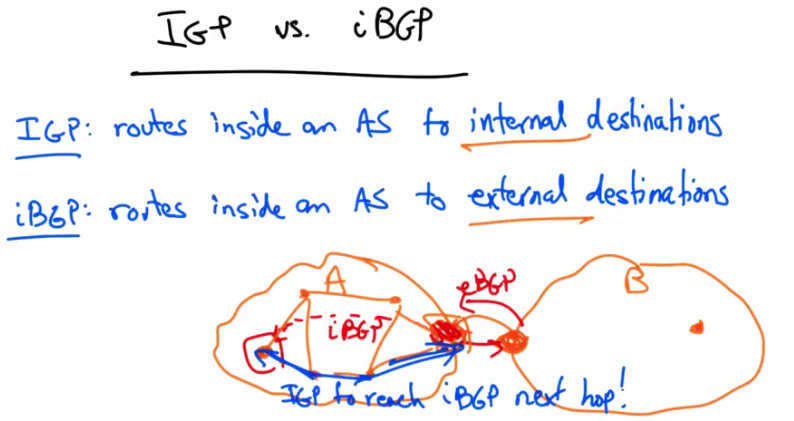 IGP vs. iBGP
IGP: routes inside an AS to internal destinations
iBGP: routes inside an AS to external destinations
A
eBGP
B
iBGP
IGP to reach iBGP next hop!